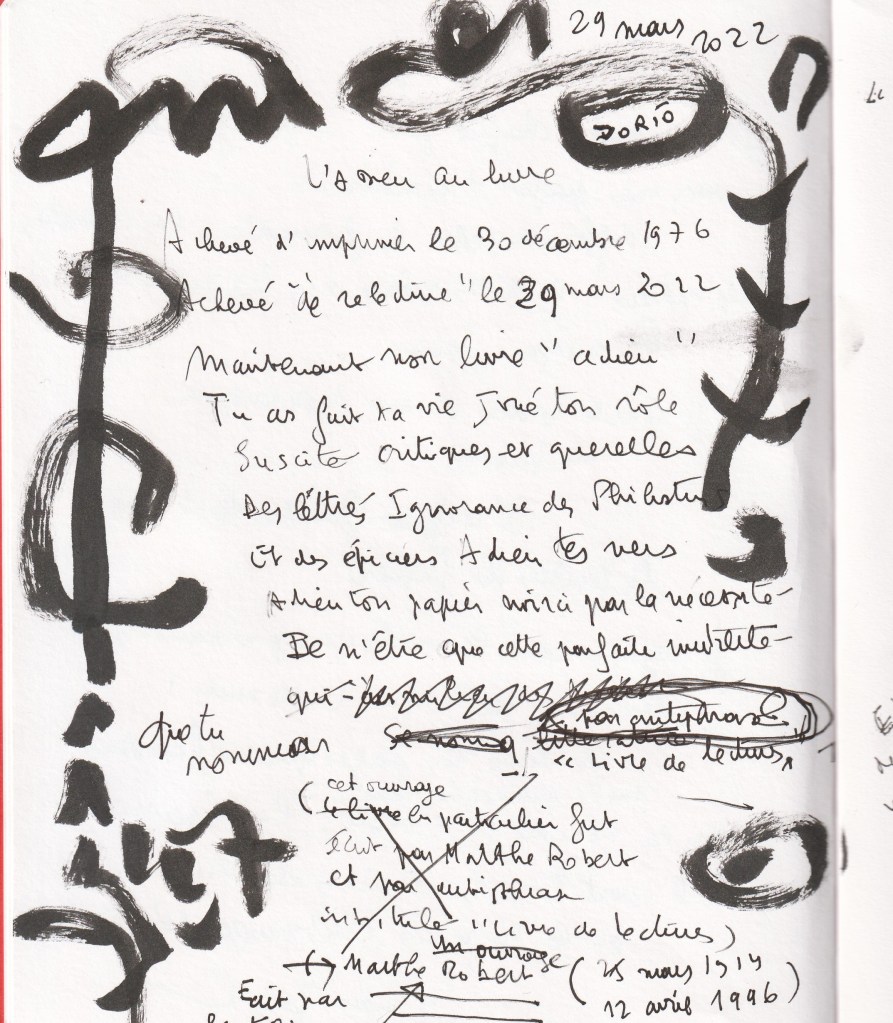 29 mars 2022
DORIO
L'Adieu au livre
Achevé d'imprimer le 30 décembre 1976
Achevé "de relecture" le 29 mars 2022
Maintenant mon livre "adieu"
Tu as fait ta vie Joué ton rôle
Suscité critiques et querelles
Des lettrés Ignorance des Philistins
Et des épiciers Adieu tes vers
Adieu ton papier noirci par la nécessité
De n'être que cette parfaite inutilité
qui
par antiphrase
Que tu nommeras
Se nomme littérature
"Livre de lectures"
(cet ouvrage
le livre en particulier fut
écrit par Marthe Robert
et par antiphrase
intitulé "Livre de lectures)
un ouvrage
Marthe Robert (25 mars 1914
12 avril 1996)
Ecrit par